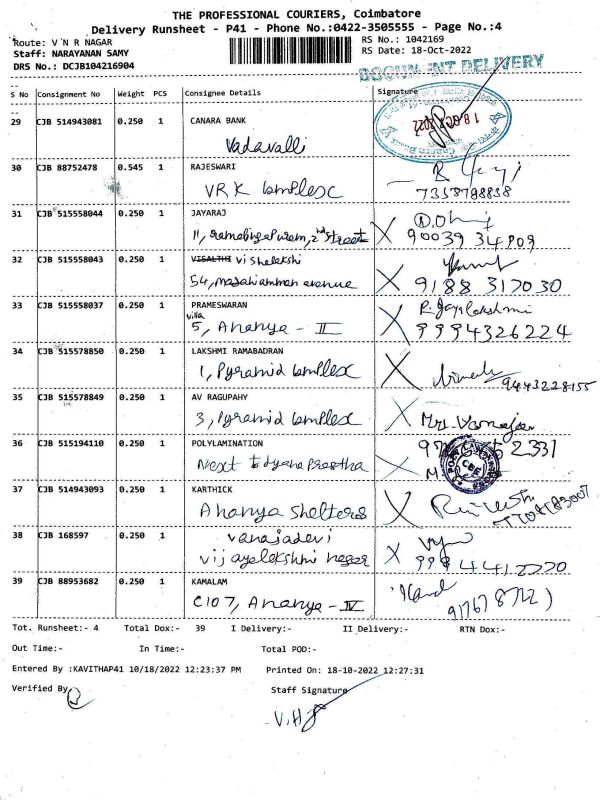 THE PROFESSIONAL COURIERS, Coimbatore
Delivery Runsheet - P41 - Phone No.:0422-3505555 - Page No.:4
Route: V N R NAGAR
RS No.: 1042169
Staff: NARAYANAN SAMY
RS Date: 18-Oct-2022
DRS No.: DCJB104216904
DOCUMENT DELIVERY
S No Consignment No Weight PCS Consignee Details Signature
29 CJB 514943081 0.250 1 CANARA BANK
Vadavalli
18 OCT 2022
30 CJB 88752478 0.545 1 RAJESWARI
VRK Complex
7358798838
31 CJB 515558044 0.250 1 JAYARAJ
11, ramalingapuram, 2nd street
90039 34809
32 CJB 515558043 0.250 1 VISALTHI vishalekshi
54, masaniamman avenue
9188 317030
33 CJB 515558037 0.250 1 PRAMESWARAN
villa
5, Ananya - II
R. Jayalakshmi
9994326224
34 CJB 515578850 0.250 1 LAKSHMI RAMABADRAN
1, Pyramid Complex
9443228155
35 CJB 515578849 0.250 1 AV RAGUPAHY
3, Pyramid Complex
Mrs. Vanaja
36 CJB 515194110 0.250 1 POLYLAMINATION
Next to dyana prastha
2331
37 CJB 514943093 0.250 1 KARTHICK
Ananya Shelters
38 CJB 168597 0.250 1 vanajadevi
vijayalekshmi nagar
39 CJB 88953682 0.250 1 KAMALAM
C107, Ananya - IV
Tot. Runsheet:- 4 Total Dox:- 39 I Delivery:- II Delivery:- RTN Dox:-
Out Time:- In Time:- Total POD:-
Entered By :KAVITHAP41 10/18/2022 12:23:37 PM Printed On: 18-10-2022 12:27:31
Verified By
Staff Signature